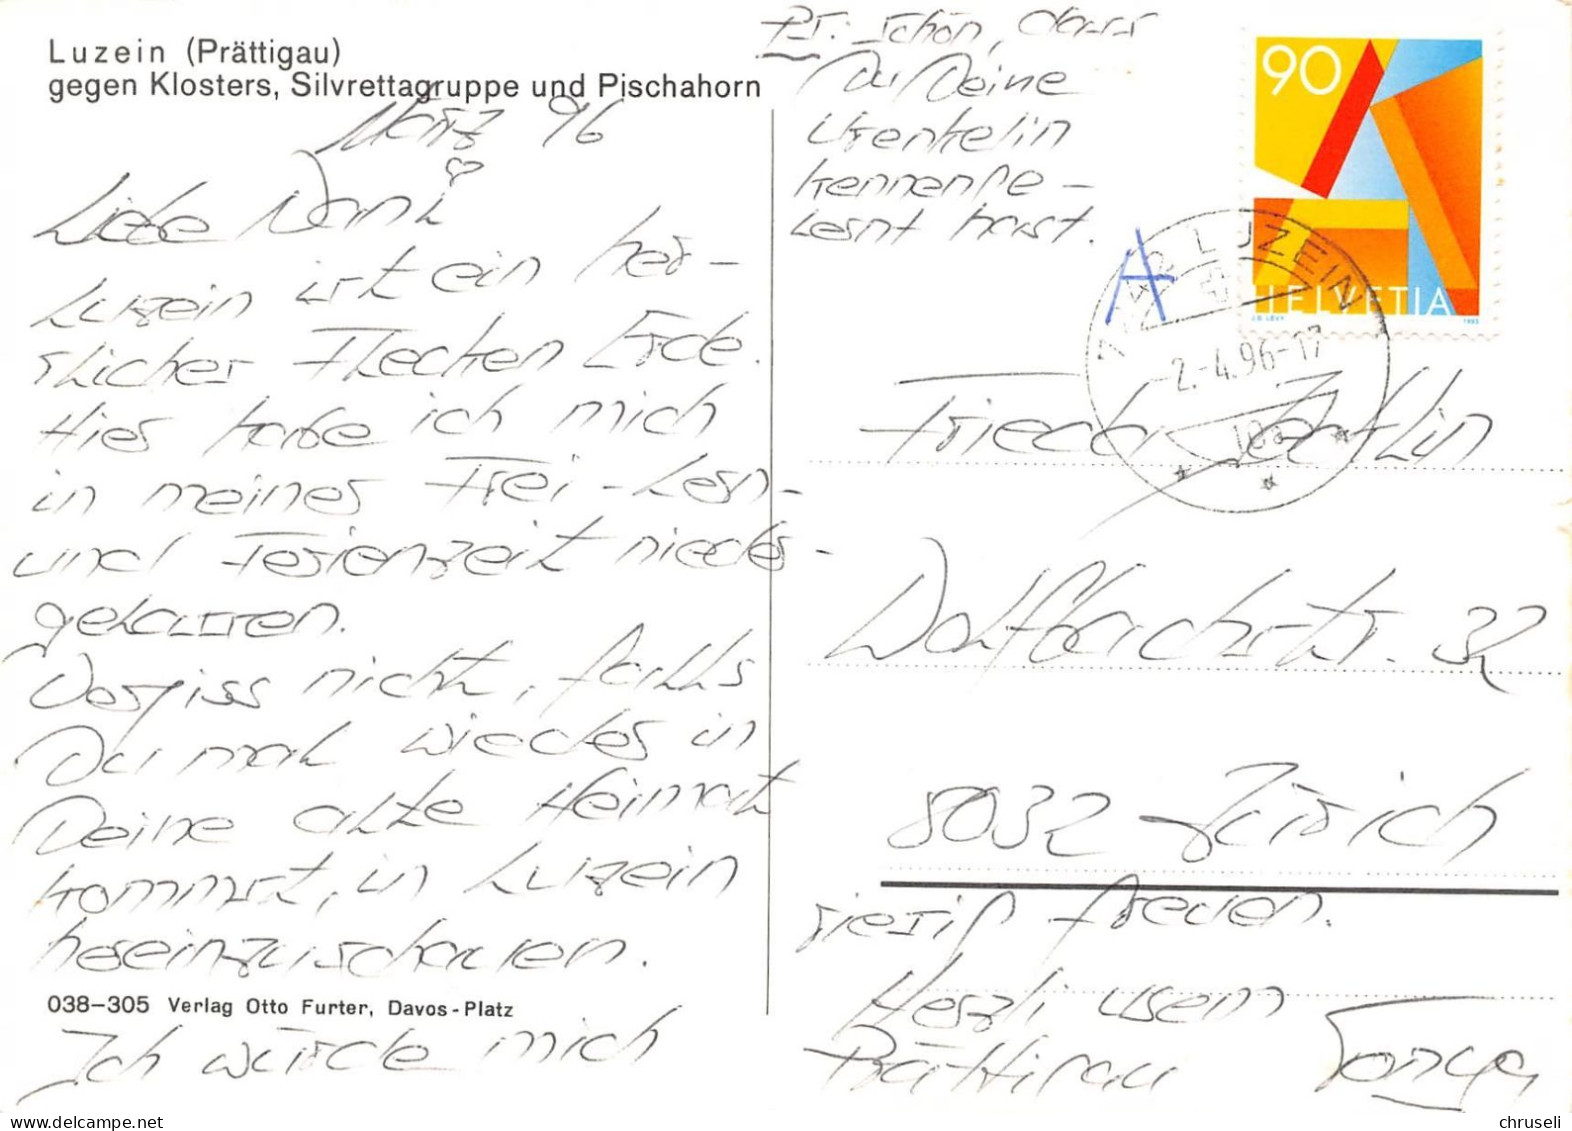 Luzein (Prättigau)
gegen Klosters, Silvrettagruppe und Pischahorn
März 96
Liebe Nani
Luzein ist ein her-
rlicher Flecken Erde.
Hier habe ich mich
in meiner Frei-Lern-
und Ferienzeit nieder-
gelassen.
Vergiss nicht, falls
Du mal wieder in
Deine alte Heimat
kommst, in Luzein
hereinzuschauen.
038-305 Verlag Otto Furter, Davos-Platz
Ich würde mich
riesig freuen.
Herzli usem
Prättigau Tonya
PS: Schön, dass
Du Deine
Urenkelin
kennenge-
lernt hast.
A
90
HELVETIA
1995
LUZEIN
-2.-4.96-17
Frieda
32
8032 Zürich
chruseli